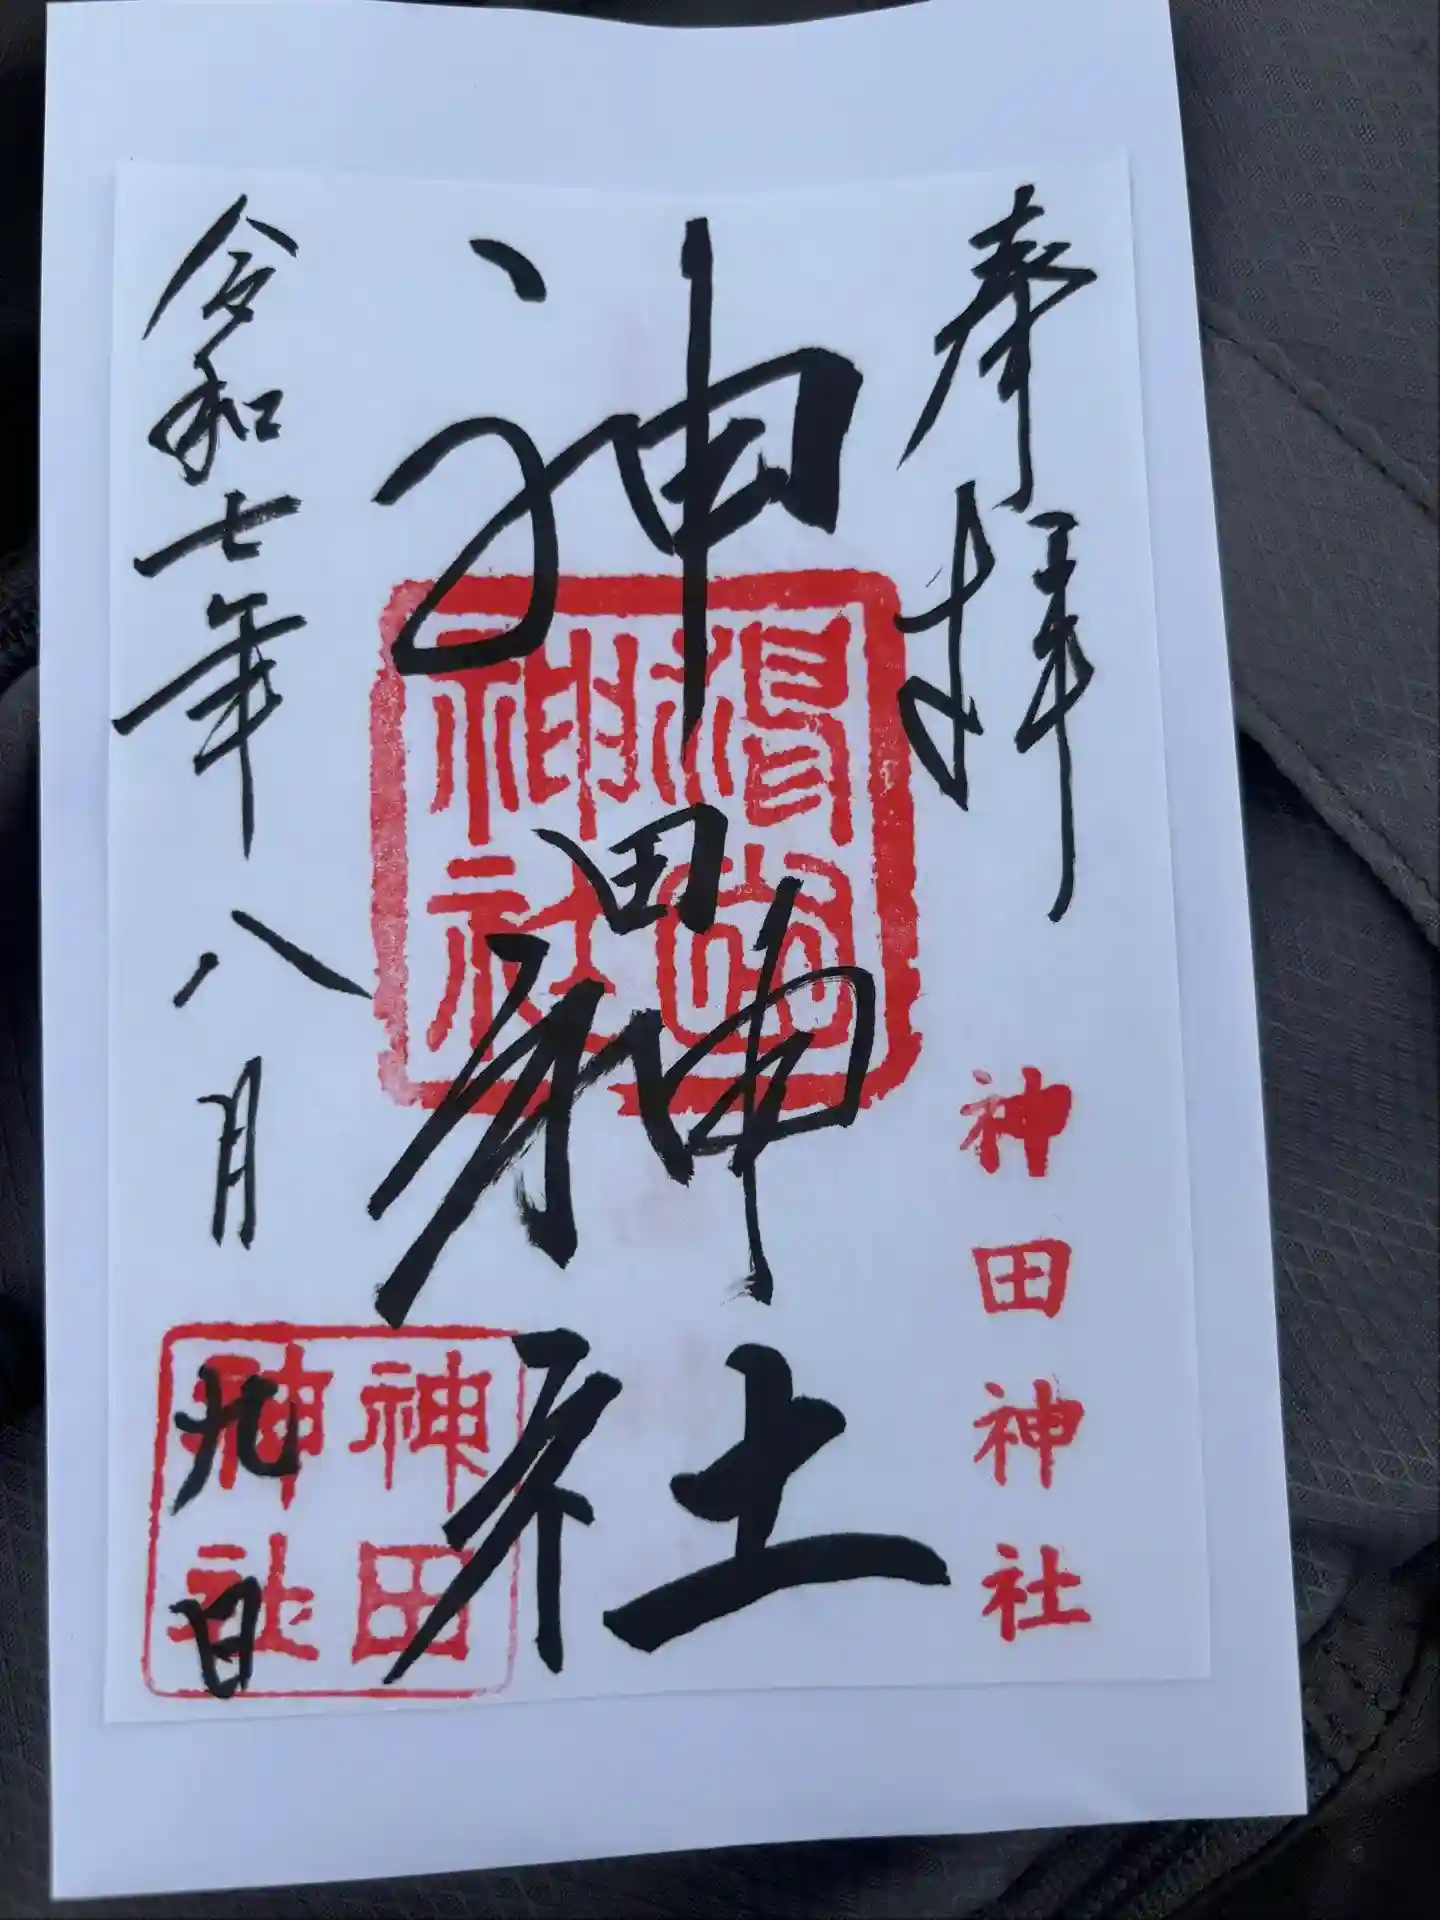 奉拝
神田神社
神田神社
神田神社
令和七年八月九日